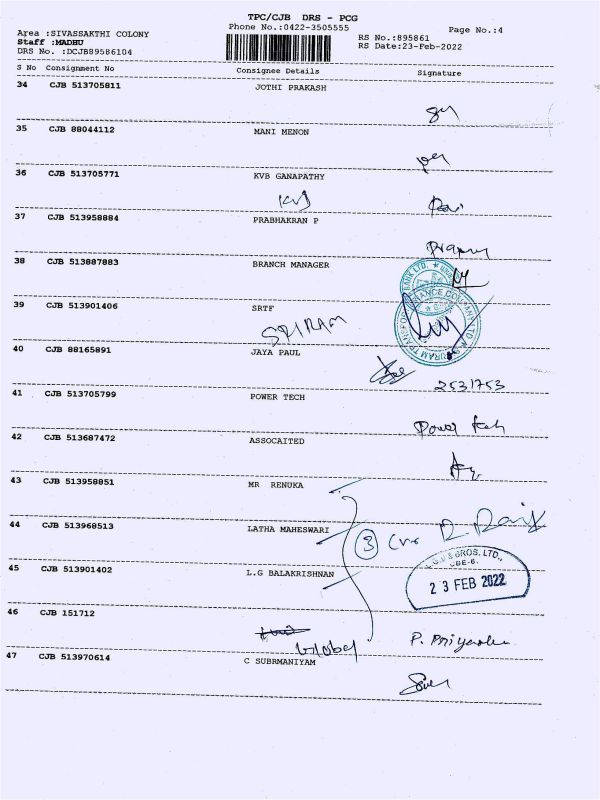 TPC/CJB DRS - PCG
Phone No.:0422-3505555
Page No.:4
Area :SIVASSAKTHI COLONY
Staff :MADHU
DRS No. :DCJB89586104
RS No.:895861
RS Date:23-Feb-2022
S No Consignment No Consignee Details Signature
34 CJB 513705811 JOTHI PRAKASH
35 CJB 88044112 MANI MENON
36 CJB 513705771 KVB GANAPATHY
KVB
37 CJB 513958884 PRABHAKRAN P
38 CJB 513887883 BRANCH MANAGER
39 CJB 513901406 SRTF
SRIRAM
40 CJB 88165891 JAYA PAUL
2531753
41 CJB 513705799 POWER TECH
Power Tech
42 CJB 513687472 ASSOCAITED
43 CJB 513958851 MR RENUKA
44 CJB 513968513 LATHA MAHESWARI
3
45 CJB 513901402 L.G BALAKRISHNAN
& BROS. LTD.,
CBE-6.
23 FEB 2022
46 CJB 151712
Global P. Priya
47 CJB 513970614 C SUBRMANIYAM